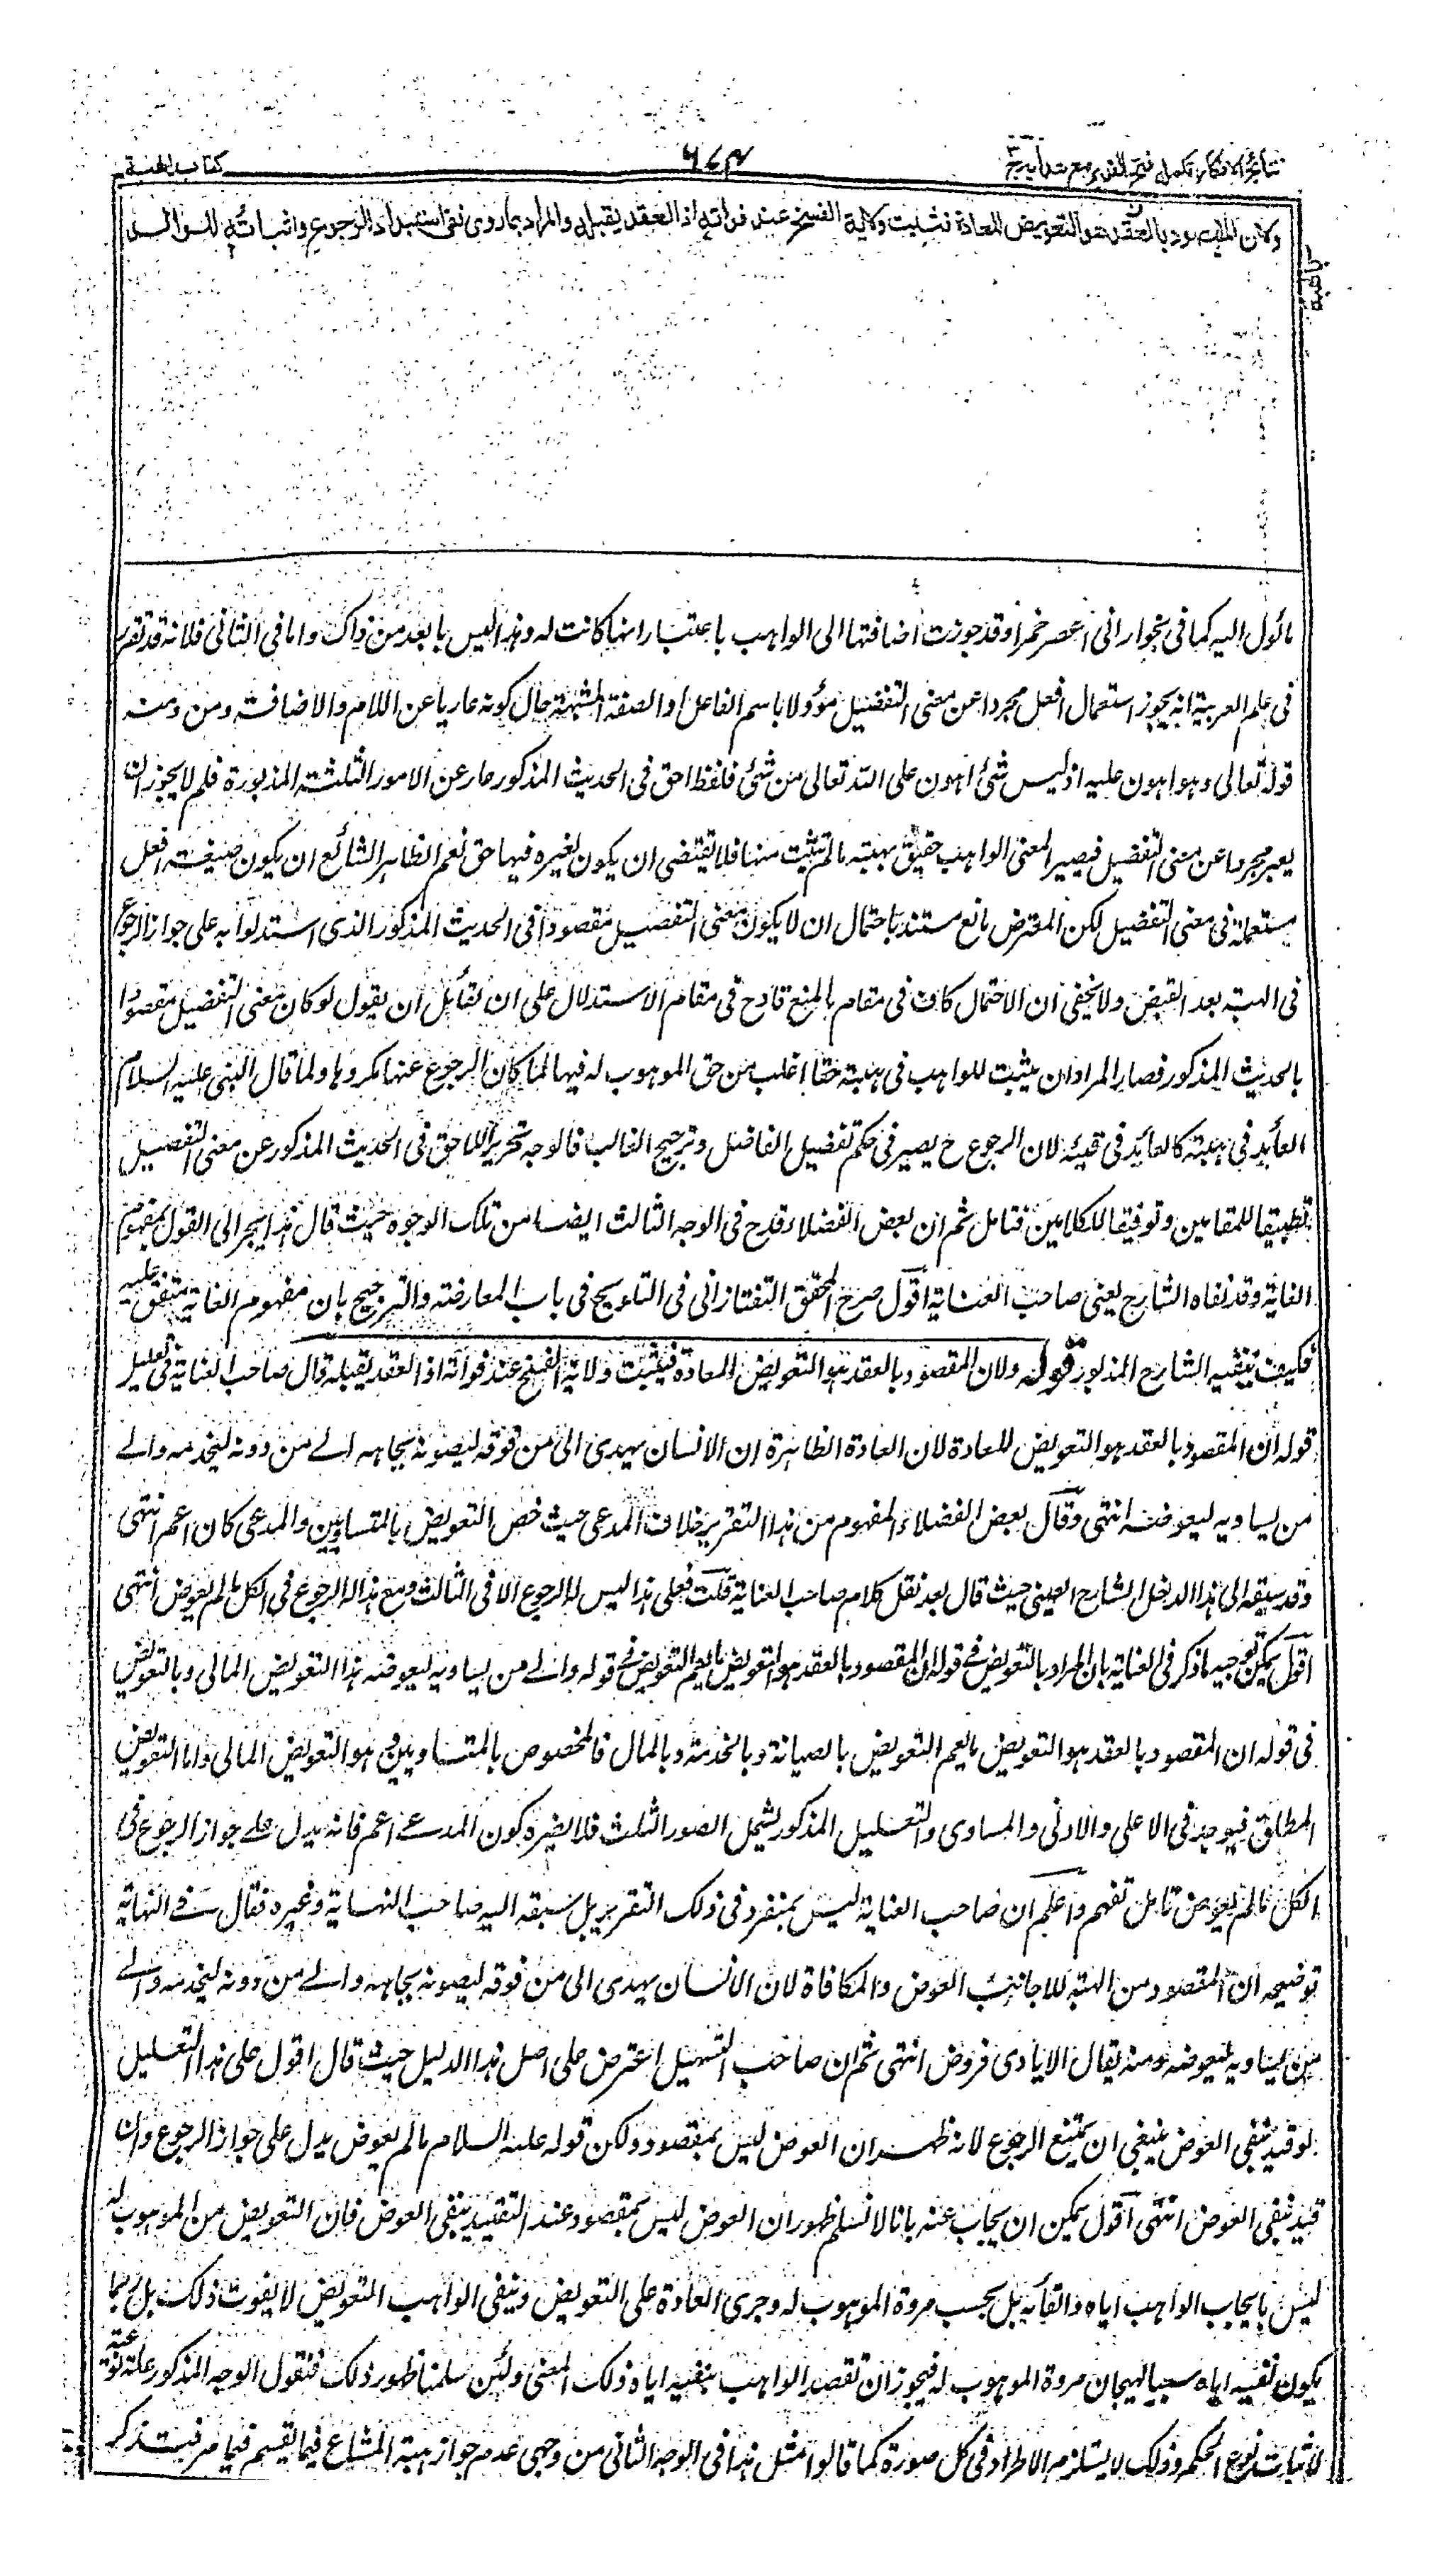 نتائج الافكار تكملہ فتح القدير مع هدايہ ج
كتاب الهبة
ولان المقصود بالعقد هو التعويض للعادة فتثبت ولاية الفسخ عند فواته اذ العقد يقبله والمراد بما روى نفي استبداد الرجوع واثباته للوالد
ما يؤل اليه كما في نحو اراني اعصر خمرا وقد جوزت اضافتها الى الواهب باعتبار انها كانت له وهذا ليس بابعد من ذاك واما في الثاني فلانه قد تقرر
في علم العربية انه يجوز استعمال افعل مجردا عن معنى التفضيل مؤولا باسم الفاعل او الصفة المشبهة حال كونه عاريا عن اللام والاضافة ومن ومنه
قوله تعالى وهو اهون عليه اذ ليس شئ اهون على الله تعالى من شئ فلفظ احق في الحديث المذكور عار عن الامور الثلثة المذبورة فلم لا يجوز ان
يعبر مجردا عن معنى التفضيل فيصير المعنى الواهب حقيق بهبته ما لم يثبت منها فلا يقتضى ان يكون لغيره فيها حق نعم الظاهر الشائع ان يكون صيغة افعل
مستعملة في معنى التفضيل لكن المعترض مانع مستند باحتمال ان لا يكون معنى التفضيل مقصودا في الحديث المذكور الذي استدلوا به على جواز الرجوع
في الهبة بعد القبض ولا يخفى ان الاحتمال كاف في مقام المنع قادح في مقام الاستدلال على ان لقائل ان يقول لو كان معنى التفضيل مقصودا
بالحديث المذكور فصار المراد ان يثبت للواهب في هبته حقا اغلب من حق الموهوب له فيها لما كان الرجوع عنها مكروها ولما قال النبي عليه السلام
العائد في هبته كالعائد في قيئه لان الرجوع ح يصير في حكم تفضيل الفاضل وترجيح الغالب فالوجه تحرير اللاحق في الحديث المذكور عن معنى التفضيل
تطبيقا للمقامين وتوفيقا للكلامين فتامل ثم ان بعض الفضلاء قدح في الوجه الثالث ايضا من تلك الوجوه حيث قال هذا يجر الى القول بمفهوم
الغاية وقد نفاه الشارح يعنى صاحب العناية اقول صرح المحقق التفتازاني في التلويح في باب المعارضة والترجيح بان مفهوم الغاية متفق عليه
فكيف ينفيه الشارح المذبور قوله ولان المقصود بالعقد هو التعويض للعادة فيثبت ولاية الفسخ عند فواته اذ العقد يقبله قال صاحب العناية في تعليل
قوله ان المقصود بالعقد هو التعويض للعادة لان العادة الظاهرة ان الانسان يهدى الى من فوقه ليصونه بجاهه والے من دونه ليخدمه والے
من يساويه ليعوضه انتهى وقال بعض الفضلاء المفهوم من هذا التقرير خلاف المدعى حيث خص التعويض بالمتساويين والمدعى كان اعم انتهى
وقد سبقه الى هذا الدخل الشارح العيني حيث قال بعد نقل كلام صاحب العناية قلت فعلى هذا ليس له الرجوع الا في الثالث ومع هذا له الرجوع في الكل ما لم يعوض انتهى
اقول يمكن توجيه ما ذكر في العناية بان المراد بالتعويض في قوله ان المقصود بالعقد هو التعويض ما يعم التعويض في قوله والے من يساويه ليعوضه هذا التعويض المالى وبالتعويض
في قوله ان المقصود بالعقد هو التعويض ما يعم التعويض بالصيانة وبالخدمة وبالمال فالمخصوص بالمتساويين هو التعويض المالى واما التعويض
المطلق فيوجد في الاعلى والادنى والمساوى والتعليل المذكور يشمل الصور الثلث فلا يضره كون المدعے اعم فانه يدل علے جواز الرجوع في
الكل ما لم يعوض تامل تفهم واعلم ان صاحب العناية ليس بمنفرد في ذلك التقرير بل سبقه اليه صاحب النهاية وغيره فقال فے النهاية
توضيحه ان المقصود من الهبة للاجانب العوض والمكافاة لان الانسان يهدى الى من فوقه ليصونه بجاهه والے من دونه ليخدمه والے
من يساويه ليعوضه ومنه يقال الايادى فروض انتهى ثم ان صاحب التسهيل اعترض على اصل هذا الدليل حيث قال اقول على هذا التعليل
لو قيد بنفي العوض ينبغي ان يمتنع الرجوع لانه ظهر ان العوض ليس بمقصود ولكن قوله عليه السلام ما لم يعوض يدل على جواز الرجوع وان
قيد بنفي العوض انتهى اقول يمكن ان يجاب عنه بانا لا نسلم ظهور ان العوض ليس بمقصود عند التقييد بنفي العوض فان التعويض من الموهوب له
ليس بايجاب الواهب اياه والقائه بل بحسب مروة الموهوب له وجرى العادة على التعويض ونفي الواهب التعويض لا يفوت ذلك بل ربما
يكون نفيه اياه سببا لهيجان مروة الموهوب له فيجوز ان تقصد الواهب بنفيه اياه ذلك المعنى ولئن سلمنا ظهور ذلك فنقول الوجه المذكور علة نوعية
لاثبات نوع الحكم وذلك لا يستلزم الاطراد في كل صورة كما قالوا مثل هذا في الوجه الثاني من وجهى عدم جواز هبة المشاع فيما يقسم فيما مر فيت ذكر